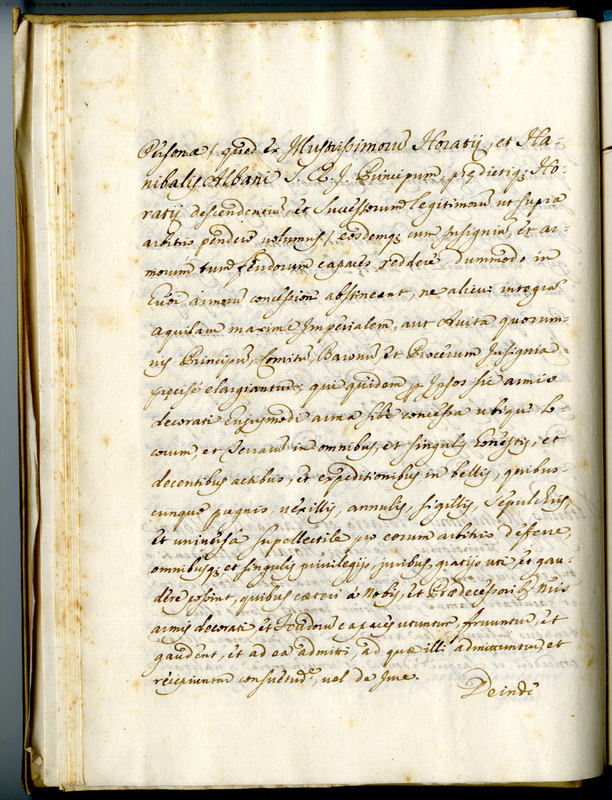 Personæ / quod ex Illustrissimorũ Horatij, et Ha-
nibalis Albani S. R. J. Principum, prædictiq; Ho-
ratij descendentiũ, et Successorum legitimorũ ut supra
arbitrio pendere volumus / eosdemq; cum Insigniũ, et ar-
morum tum feudorum capaces reddere. Dummodo in
armorũ concession abstineant, ne alicui integrã
Aquilam maxime Imperialem, aut Avita quorum-
vis Principũ, Comitũ, Baronũ, et Procerum Insignia
precisè elargiantur; qui quidem p Ipsos sic armis
decorati hujusmodi arma sibi concessa ubique lo
corum, et Terrarũ in omnibus, et singulis honestis, et
decentibus actibus, et expeditionibus in bellis, quibus-
cunque pugnis vexillis, annulis, sigillis, Sepulchris,
et universa supellectile pro eorum arbitrio deferre,
omnibusq; et singulis privilegijs, juribus, gratijs uti et gau-
dere possint, quibus cæteri à Nobis, et Prædecessoribus Nris
armis decorati et feudorũ capaces utuntur, fruuntur, et
gaudent, et ad ea admitti, ad quæ illi admittuntur, et
recipiuntur consuetudẽ, vel de Jure.
Deinde